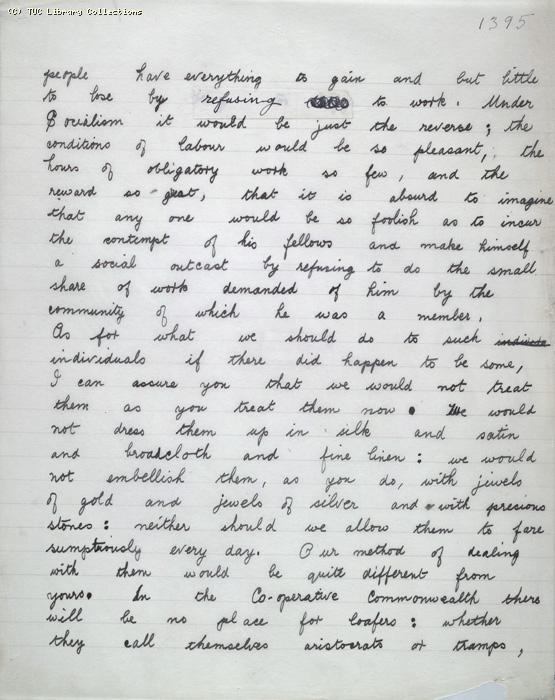 (C) TUC Library Collections
1395
people have everything to gain and but little
to lose by refusing to work. Under
Socialism it would be just the reverse; the
conditions of labour would be so pleasant, the
hours of obligatory work so few, and the
reward so great, that it is absurd to imagine
that any one would be so foolish as to incur
the contempt of his fellows and make himself
a social outcast by refusing to do the small
share of work demanded of him by the
community of which he was a member.
As for what we should do to such
individuals if there did happen to be some,
I can assure you that we would not treat
them as you treat them now. We would
not dress them up in silk and satin
and broadcloth and fine linen: we would
not embellish them, as you do, with jewels
of gold and jewels of silver and with precious
stones: neither should we allow them to fare
sumptuously every day. Our method of dealing
with them would be quite different from
yours. In the Co-operative Commonwealth there
will be no place for loafers: whether
they call themselves aristocrats or tramps,